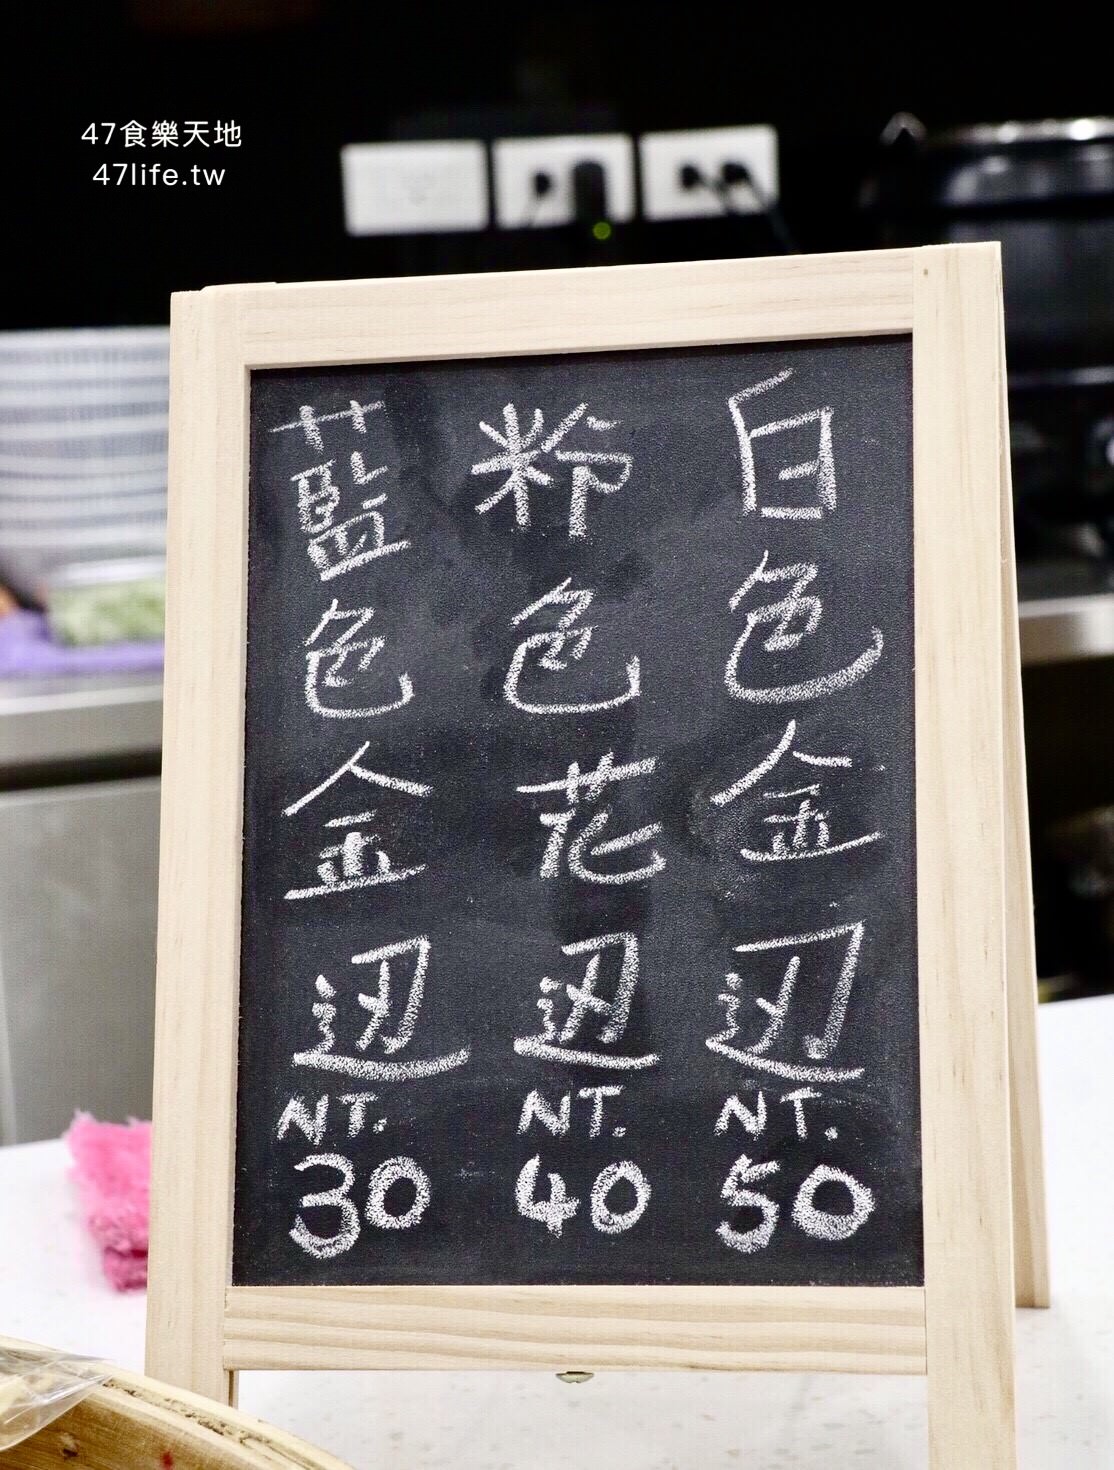 47食樂天地
47life.tw
白色金边
NT.
50
粉色花边
NT.
40
藍色金边
NT.
30